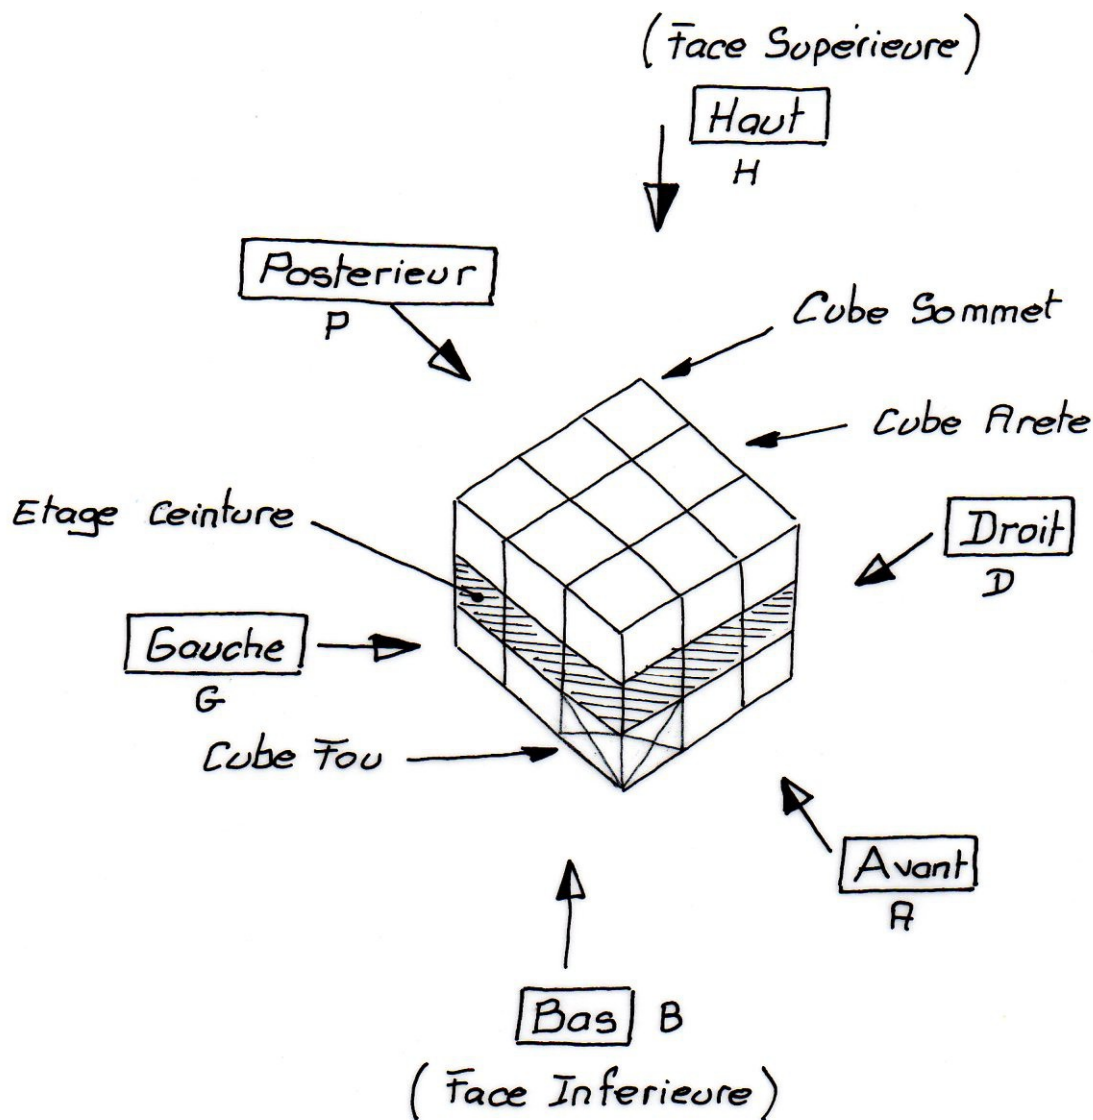 (Face Supérieure)
Haut
H
Posterieur
P
Cube Sommet
Cube Arete
Etage Ceinture
Droit
D
Gauche
G
Cube Fou
Avant
A
Bas B
(Face Inferieure)